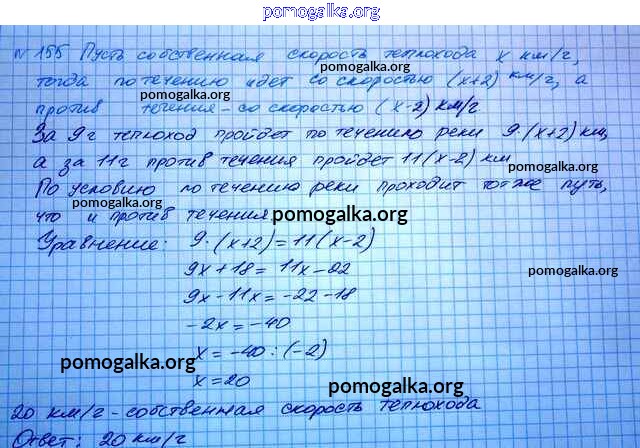 pomogalka.org
№ 155 Пусть собственная скорость теплохода х км/г,
pomogalka.org
тогда по течению идет со скоростью (х+2) км/г, а
pomogalka.org
против течения - со скоростью (х-2) км/г
pomogalka.org
За 9г теплоход пройдет по течению реки 9·(х+2) км,
а за 11г против течения пройдет 11(х-2) км
pomogalka.org
По условию по течению реки проходит тот же путь,
pomogalka.org
что и против течения
pomogalka.org
Уравнение: 9·(х+2)=11(х-2)
9х+18=11х-22
pomogalka.org
9х-11х=-22-18
-2х=-40
х=-40:(-2)
pomogalka.org
х=20
pomogalka.org
20 км/г - собственная скорость теплохода
Ответ: 20 км/г